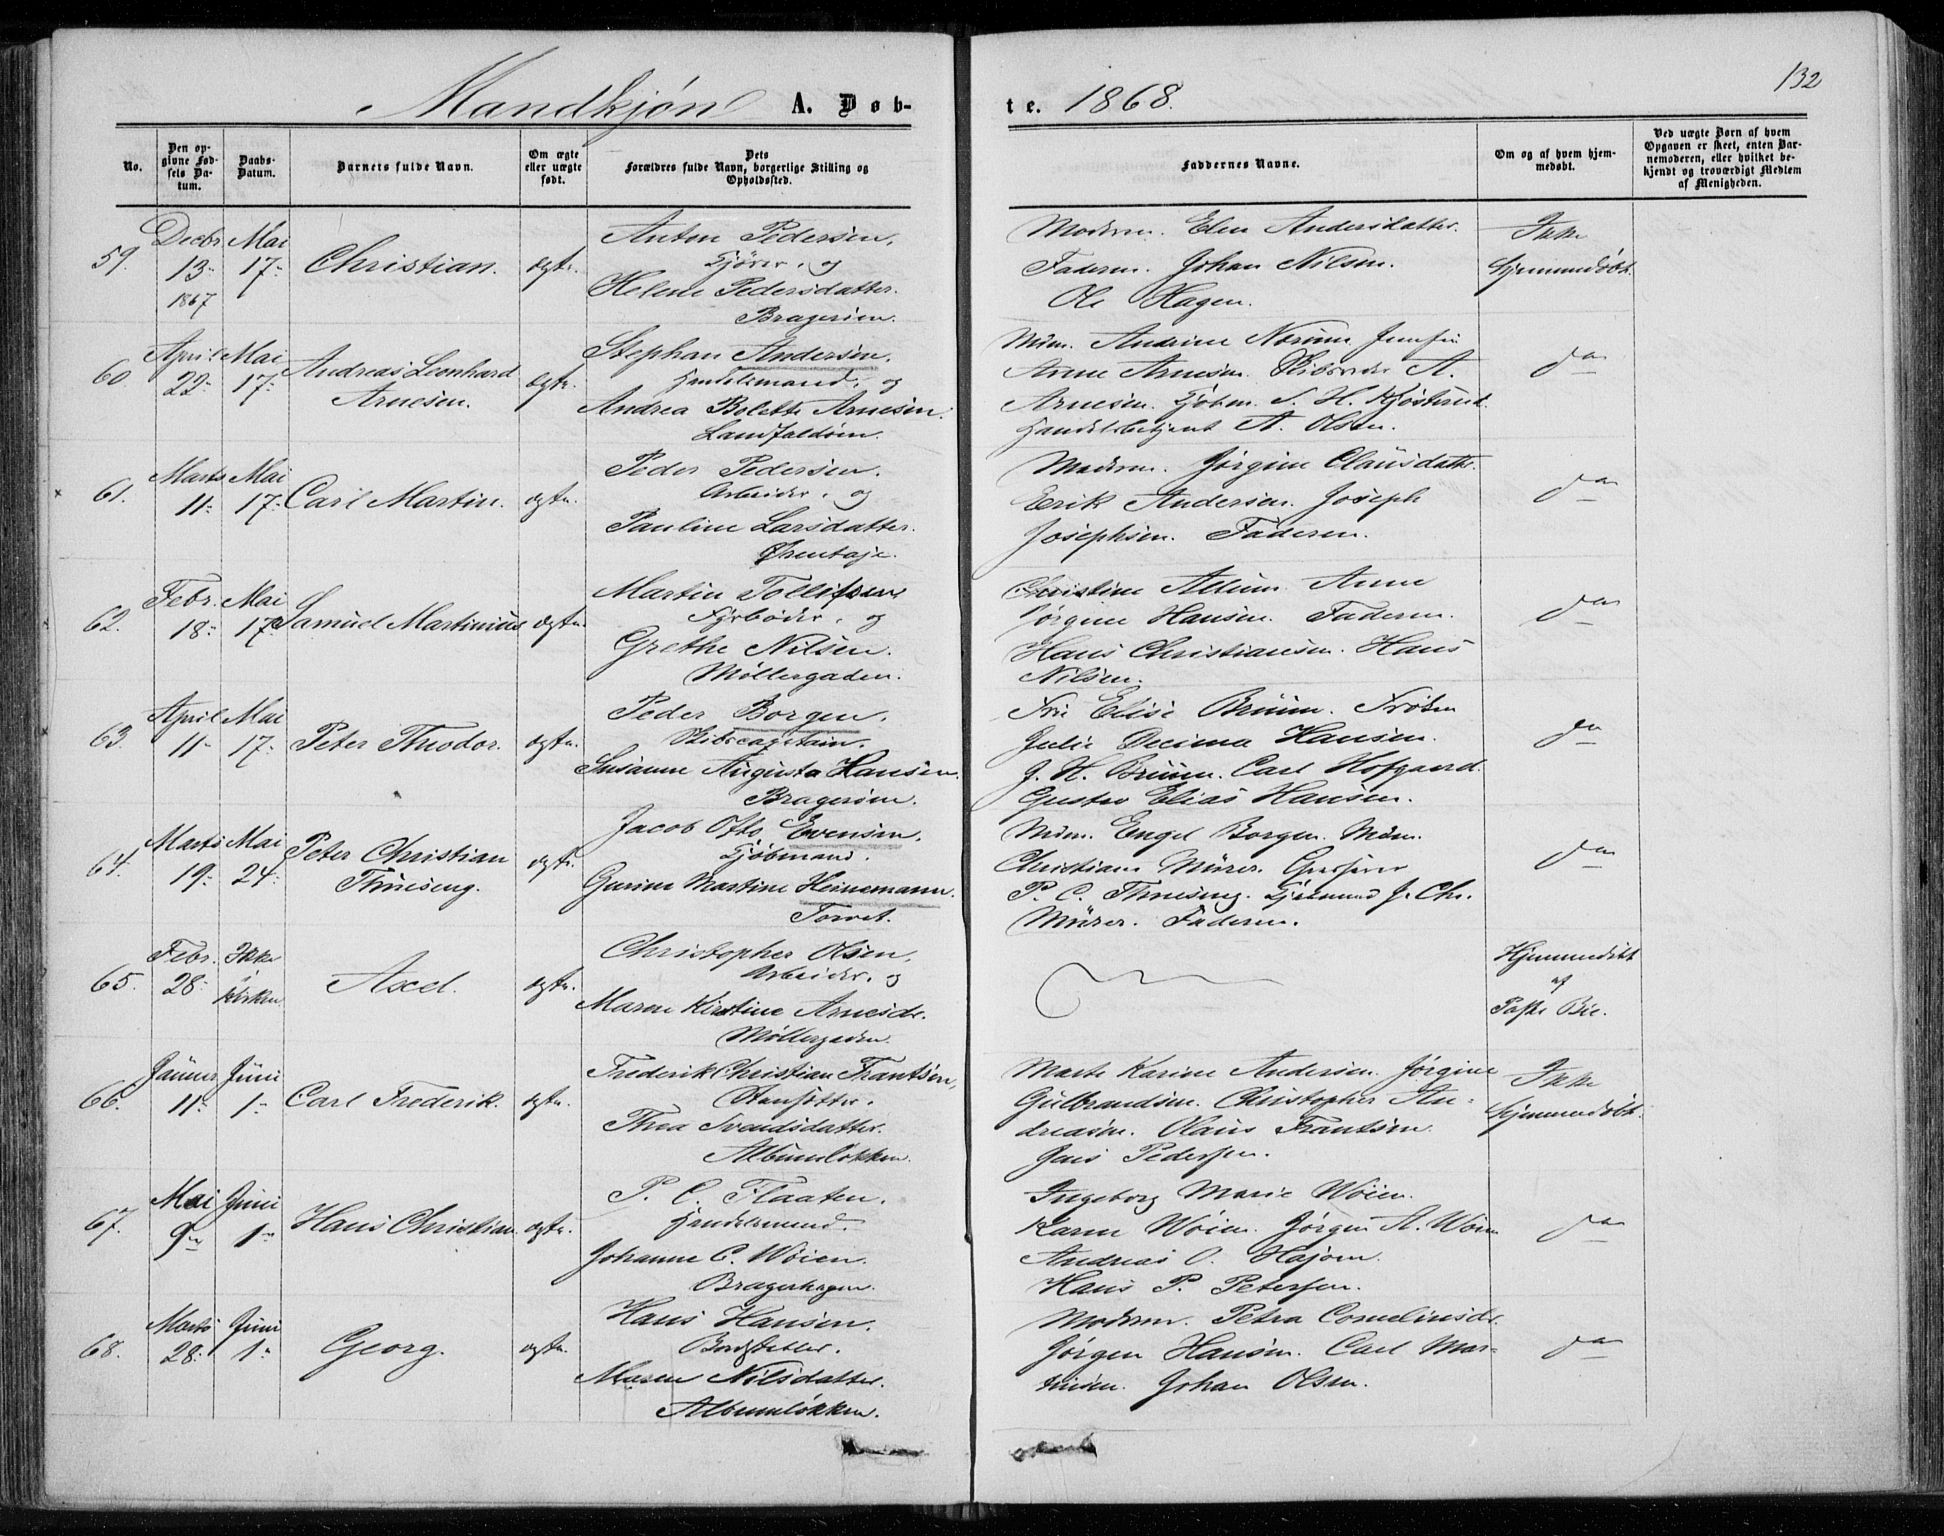 132
Mandkjøn A. Døb-
te. 1868.
No.
Den op-
givne Fød-
sels Da-
tum.
Daabs-
Datum.
Barnets fulde Navn.
Om ægte
eller uægte
født.
Dets
Forældres fulde Navn, borgerlige Stilling og
Opholdssted.
Faddernes Navne.
Om og af hvem hjem-
medøbt.
Ved uægte Børn af hvem
Opgaven er skeet, enten Bar-
nemoderen, eller hvilket be-
kjendt og troværdigt Medlem
af Menigheden.
59.
Decbr
13
1867
Mai
17
Christian.
ægte.
Anton Pedersen,
Kjører, og
Helene Pedersdatter.
Bragerøen.
Moderen. Elen Andersdatter.
Faderen. Johan Nilsen.
Ole Hagen.
Ikke
hjemmedøbt.
60.
April
22
Mai
17
Andreas Leonhard
Arnesen.
ægte.
Stephan Andersen,
Handelsmand, og
Andrea Bolette Arnesen.
Landfaldøen.
Mdm. Andrine Norum Jomfru
Anne Arnesen. A.
Arnesen. Kjøbm. S. H. Kjøsterud.
Handelsbetjent A. Olsen.
do
61.
Marts
11
Mai
17
Carl Martin.
ægte.
Peder Pedersen.
Arbeider, og
Pauline Larsdatter.
Moderen. Jørgine Clausdatter.
Erik Andersen. Joseph
Josephsen. Faderen.
do
62.
Febr.
18
Mai
17
Samuel Martinius
ægte.
Martin Tollefsen
Fyrbøder, og
Grethe Nilsen.
Møllergaden.
Christine Allum. Anne
Jørgine Hansen. Faderen.
Hans Christiansen. Hans
Nilsen.
do
63.
April
11
Mai
17
Peter Theodor.
ægte.
Peder Borgen,
Skibscapitain.
Susanne Augusta Hansen.
Bragerøen.
Fru Elise Bruun. Frøken
Julie Decima Hansen.
J. H. Bruun. Carl Hofgaard.
Gustav Elias Hansen.
do
64.
Marts
19
Mai
24
Peter Christian
Thueseng.
ægte.
Jacob Otto Evensen,
Kjøbmand.
Gurine Martine Heinemann.
Torvet.
Mdm. Engel Borgen. Mdm.
Christiane Mürer. Grosserer
P. C. Thuesing. Kjøbmand J. Chr.
Mürer. Faderen.
do
65.
Febr.
28
Ikke
i
Kirken
Axel.
ægte.
Christopher Olsen,
Arbeider, og
Maren Kirstine Arnesdr.
Møllergaden.
Hjemmedøbt
af
Bie.
66.
Januar
11
Juni
1
Carl Frederik.
ægte.
Frederik Christian Frantsen,
Thea Svendsdatter.
Albumløkken.
Marte Karine Andersen. Jørgine
Gulbrandsen. Christopher An-
dreasen. Claus Frantsen.
Jens Pedersen.
Ikke
hjemmedøbt.
67.
Mai
9
Juni
1
Hans Christian.
ægte.
P. C. Flaaten.
Handelsmand.
Johanne C. Wøien.
Bragerhagen.
Ingeborg Marie Wøien.
Karen Wøien. Jørgen A. Wøien
Andreas O. Hajom.
Hans P. Petersen.
do
68.
Marts
28
Juni
1
Georg.
ægte.
Hans Hansen.
Bordstabler.
Maren Nilsdatter.
Albumløkken.
Moderen. Petra Corneliusdr.
Jørgen Hansen. Carl Mar-
tinsen. Johan Olsen.
do